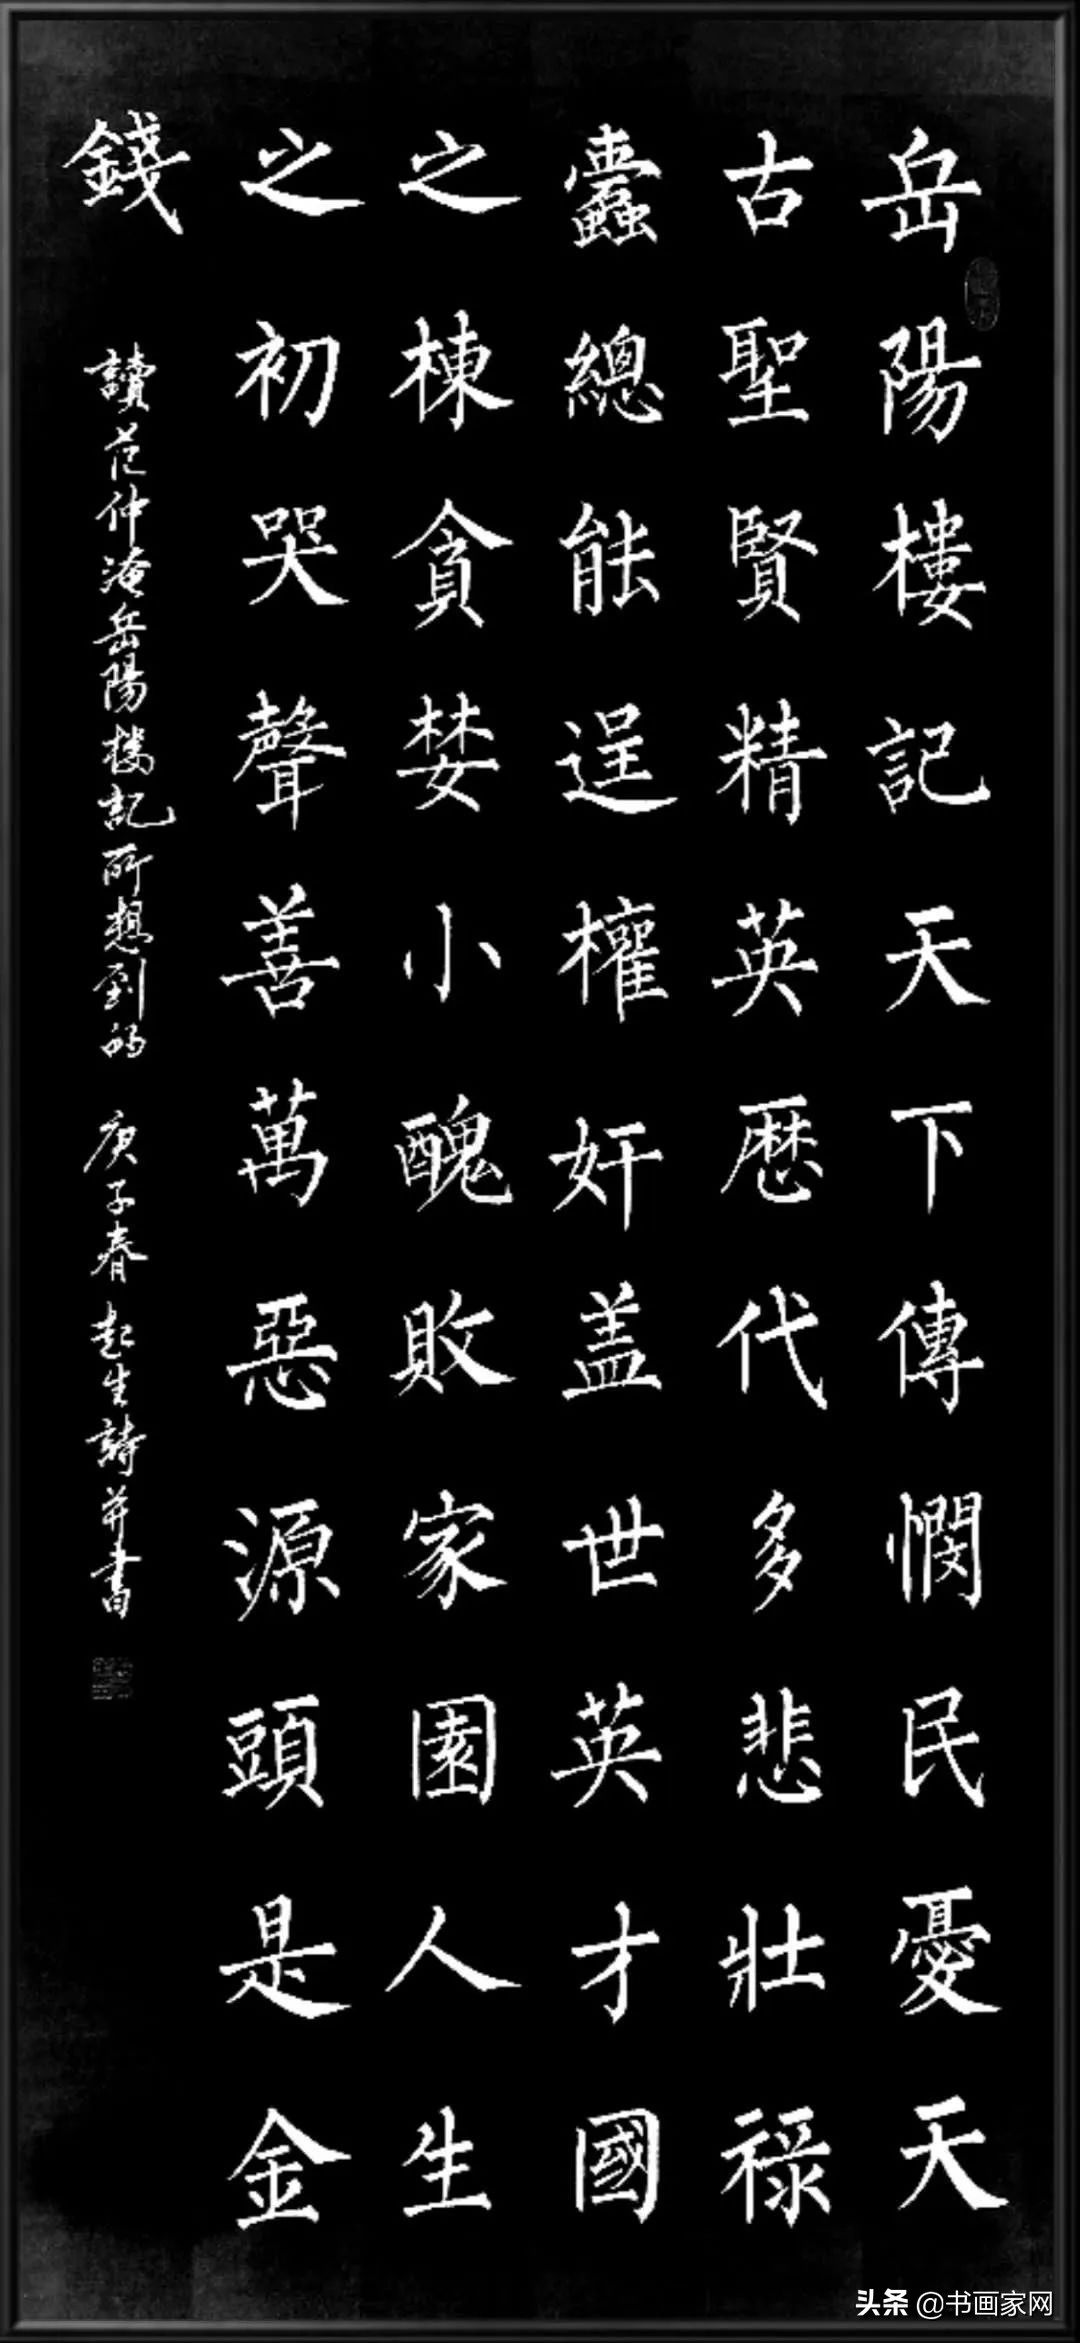 岳陽樓記天下傳憫民憂天
古聖賢精英歷代多悲壯祿
蠹總能逞權奸蓋世英才國
之棟貪婪小醜敗家園人生
之初哭聲善萬惡源頭是金
錢
讀范仲淹岳陽樓記所想到的 庚子春起生詩并書
头条 @书画家网